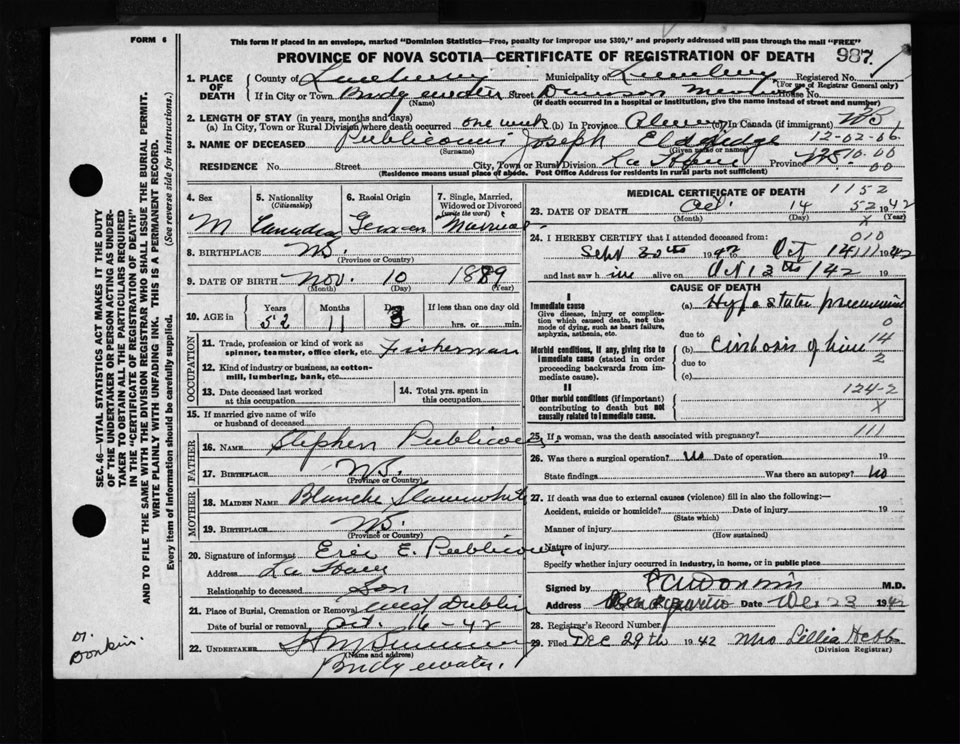 FORM 6
This form if placed in an envelope, marked "Dominion Statistics—Free, penalty for improper use $300," and properly addressed will pass through the mail "FREE"
PROVINCE OF NOVA SCOTIA—CERTIFICATE OF REGISTRATION OF DEATH 987
1. PLACE OF DEATH County of Lunenburg Municipality of Lunenburg Registered No. 1
(For use of Registrar General only)
If in City or Town Bridgewater Street Dawson Memorial House No.
(Name) (If death occurred in a hospital or institution, give the name instead of street and number)
2. LENGTH OF STAY (in years, months and days)
(a) In City, Town or Rural Division where death occurred one week (b) In Province Always (c) In Canada (if immigrant)
12-02-06
3. NAME OF DECEASED Publicover Joseph Eldridge
(Surname) (Given name or names)
RESIDENCE No. Street City, Town or Rural Division La Have Province N.S.
10.00
00
(Residence means usual place of abode. Post Office Address for residents in rural parts not sufficient)
4. Sex M
5. Nationality (Citizenship) Canadian
6. Racial Origin German
7. Single, Married, Widowed or Divorced (write the word) Married
8. BIRTHPLACE N.S.
(Province or Country)
9. DATE OF BIRTH Nov. 10 1889
(Month) (Day) (Year)
10. AGE in Years Months Days If less than one day old
52 11 hrs. or min.
OCCUPATION
11. Trade, profession or kind of work as spinner, teamster, office clerk, etc. Fisherman
12. Kind of industry or business, as cotton-mill, lumbering, bank, etc.
13. Date deceased last worked at this occupation
14. Total yrs. spent in this occupation
15. If married give name of wife or husband of deceased
FATHER
16. NAME Stephen Publicover
17. BIRTHPLACE N.S.
(Province or Country)
MOTHER
18. MAIDEN NAME Blanche Slaunwhite
19. BIRTHPLACE N.S.
(Province or Country)
20. Signature of informant Eric E. Publicover
Address La Have
Relationship to deceased Son
21. Place of Burial, Cremation or Removal West Dublin
Date of burial or removal Oct. 16-42
22. UNDERTAKER
(Name and address)
Bridgewater.
MEDICAL CERTIFICATE OF DEATH 1152
23. DATE OF DEATH Oct. 14 52 1942
(Month) (Day) (Year)
x
24. I HEREBY CERTIFY that I attended deceased from: 010
Sept 30th 1942 Oct 14 111 1942
and last saw him alive on Oct 13th/42 19
CAUSE OF DEATH
I
Immediate cause
Give disease, injury or complication which caused death, not the mode of dying, such as heart failure, asphyxia, asthenia, etc.
(a) Hypostatic pneumonia
0
due to 14
Morbid conditions, if any, giving rise to immediate cause (stated in order proceeding backwards from immediate cause).
(b) Cirrhosis of liver
due to 2
(c)
124-2
II
Other morbid conditions (if important) contributing to death but not causally related to immediate cause.
x
25. If a woman, was the death associated with pregnancy? 111
26. Was there a surgical operation? No Date of operation 19
State findings Was there an autopsy? No
27. If death was due to external causes (violence) fill in also the following:—
Accident, suicide or homicide? Date of injury 19
(State which)
Manner of injury
(How sustained)
Nature of injury
Specify whether injury occurred in industry, in home, or in public place
Signed by M.D.
Address Date Dec 23 1942
28. Registrar's Record Number
29. Filed Dec 29th 1942 Mrs Lillia Hebb
(Division Registrar)
SEC. 46—VITAL STATISTICS ACT MAKES IT THE DUTY
OF THE UNDERTAKER OR PERSON ACTING AS UNDER-
TAKER TO OBTAIN ALL THE PARTICULARS REQUIRED
IN THE "CERTIFICATE OF REGISTRATION OF DEATH"
AND TO FILE THE SAME WITH THE DIVISION REGISTRAR WHO SHALL ISSUE THE BURIAL PERMIT.
WRITE PLAINLY WITH UNFADING INK. THIS IS A PERMANENT RECORD.
Every item of information should be carefully supplied. (See reverse side for instructions.)
Dr. Donkin.